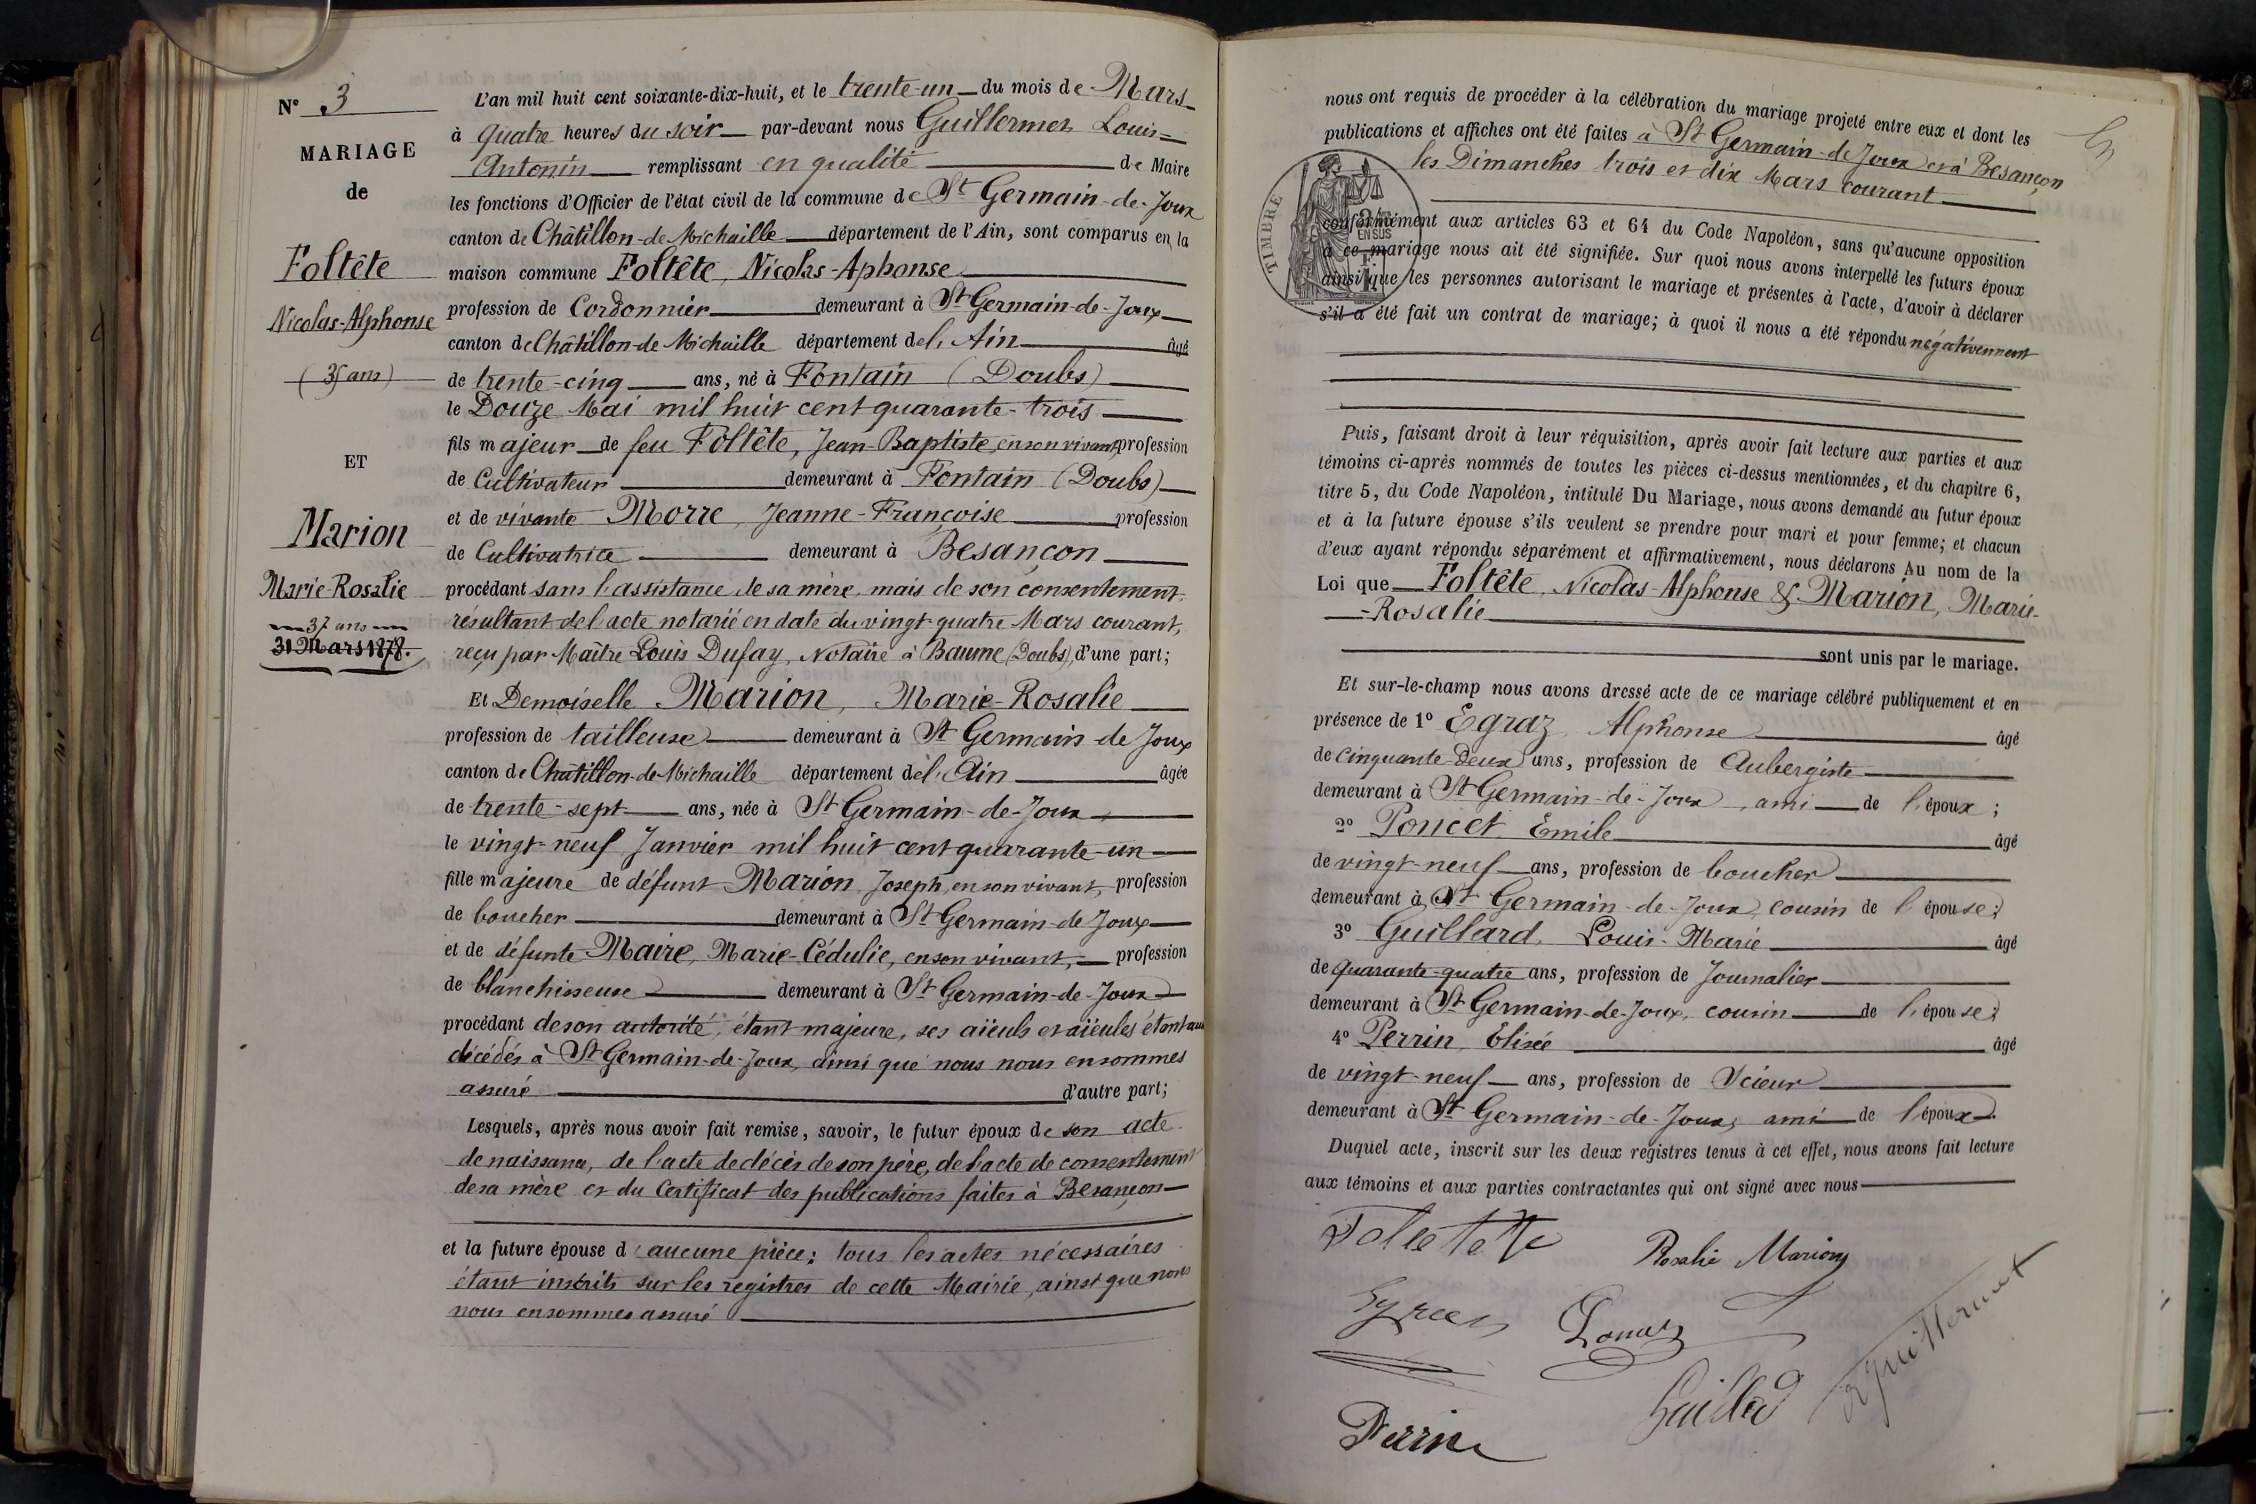 N° 3
MARIAGE
de
Foltête
Nicolas-Alphonse
(35 ans)
ET
Marion
Marie-Rosalie
37 ans
31 Mars 1878.
L'an mil huit cent soixante-dix-huit, et le trente-un du mois de Mars
à quatre heures du soir par-devant nous Guillermet Louis=
Antonin remplissant en qualité de Maire
les fonctions d'Officier de l'état civil de la commune de St Germain-de-Joux
canton de Châtillon-de-Michaille département de l'Ain, sont comparus en la
maison commune Foltête, Nicolas-Aphonse
profession de Cordonnier demeurant à St Germain-de-Joux
canton de Châtillon-de-Michaille département de l'Ain âgé
de trente-cinq ans, né à Fontain (Doubs)
le Douze Mai mil huit cent quarante-trois
fils majeur de feu Foltête, Jean-Baptiste, en son vivant, profession
de Cultivateur demeurant à Fontain (Doubs)
et de vivante Morre, Jeanne-Françoise profession
de Cultivatrice demeurant à Besançon
procédant sans l'assistance de sa mère, mais de son consentement,
résultant de l'acte notarié en date du vingt-quatre Mars courant,
reçu par Maître Louis Dufay, Notaire à Baume (Doubs), d'une part;
Et Demoiselle Marion, Marie-Rosalie
profession de tailleuse demeurant à St Germain-de-Joux
canton de Châtillon-de-Michaille département de l'Ain âgée
de trente-sept ans, née à St Germain-de-Joux,
le vingt-neuf Janvier mil huit cent quarante-un
fille majeure de défunt Marion, Joseph, en son vivant, profession
de boucher demeurant à St Germain-de-Joux
et de défunte Maire, Marie-Cédulie, en son vivant, profession
de blanchisseuse demeurant à St Germain-de-Joux
procédant de son autorité, étant majeure, ses aïeuls et aïeules étant
décédés à St Germain-de-Joux, ainsi que nous nous en sommes
assuré d'autre part;
Lesquels, après nous avoir fait remise, savoir, le futur époux de son acte
de naissance, de l'acte de décès de son père, de l'acte de consentement
de sa mère et du Certificat des publications faites à Besançon
et la future épouse d'aucune pièce: tous les actes nécessaires
étant inscrits sur les registres de cette Mairie, ainsi que nous
nous en sommes assuré
nous ont requis de procéder à la célébration du mariage projeté entre eux et dont les
publications et affiches ont été faites à St Germain-de-Joux et à Besançon
les Dimanches trois et dix Mars courant
TIMBRE
EN SUS
conformément aux articles 63 et 64 du Code Napoléon, sans qu'aucune opposition
à ce mariage nous ait été signifiée. Sur quoi nous avons interpellé les futurs époux
ainsi que les personnes autorisant le mariage et présentes à l'acte, d'avoir à déclarer
s'il a été fait un contrat de mariage; à quoi il nous a été répondu négativement
Puis, faisant droit à leur réquisition, après avoir fait lecture aux parties et aux
témoins ci-après nommés de toutes les pièces ci-dessus mentionnées, et du chapitre 6,
titre 5, du Code Napoléon, intitulé Du Mariage, nous avons demandé au futur époux
et à la future épouse s'ils veulent se prendre pour mari et pour femme; et chacun
d'eux ayant répondu séparément et affirmativement, nous déclarons Au nom de la
Loi que Foltête, Nicolas-Alphonse & Marion, Marie-
-Rosalie
sont unis par le mariage.
Et sur-le-champ nous avons dressé acte de ce mariage célébré publiquement et en
présence de 1° Egraz, Alphonse âgé
de cinquante-deux ans, profession de Aubergiste
demeurant à St Germain-de-Joux, ami de l'époux;
2° Poncet, Emile âgé
de vingt-neuf ans, profession de boucher
demeurant à St Germain-de-Joux, cousin de l'épouse;
3° Guillard, Louis-Marie âgé
de quarante-quatre ans, profession de Journalier
demeurant à St Germain-de-Joux, cousin de l'épouse;
4° Perrin, Elisée âgé
de vingt-neuf ans, profession de Scieur
demeurant à St Germain-de-Joux, ami de l'époux.
Duquel acte, inscrit sur les deux registres tenus à cet effet, nous avons fait lecture
aux témoins et aux parties contractantes qui ont signé avec nous
Rosalie Marion
Perrin